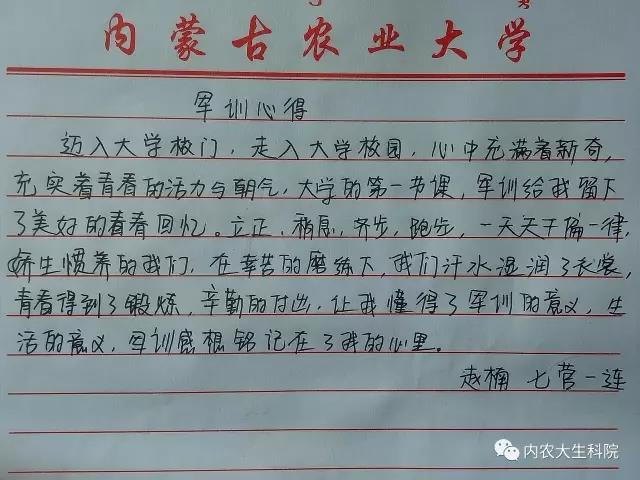 内蒙古农业大学
军训心得
迈入大学校门,走入大学校园,心中充满着新奇,
充实着青春的活力与朝气,大学的第一节课,军训给我留下
了美好的青春回忆。立正、稍息、齐步、跑步,一天天千偏一律,
娇生惯养的我们,在辛苦的磨练下,我们汗水湿润了衣裳,
青春得到了锻炼,辛勤的付出,让我懂得了军训的意义,生
活的意义,军训感想铭记在了我的心里。
赵楠 七营一连
内农大生科院